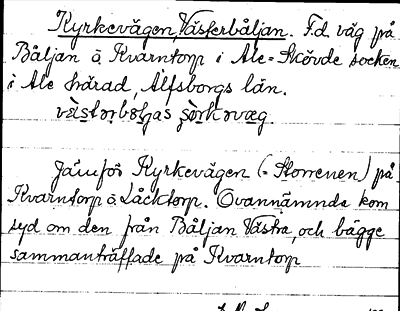 Kyrkevägen, Västerbåljan. F.d. väg på
Båljan å Kvarntorp i Ale-Skövde socken
i Ale härad, Älfsborgs län.
Jämför Kyrkevägen (=Storrenen) på
Kvarntorp å Låcktorp. Ovannämnda kom
syd om den från Båljan Västra, och bägge
sammanträffade på Kvarntorp